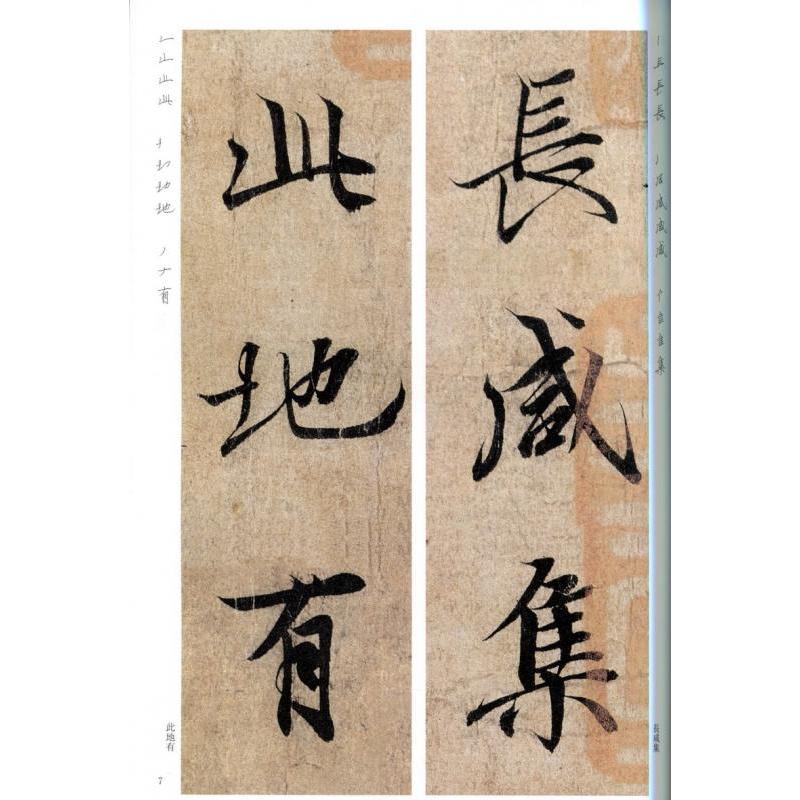 長咸集
此地有
長咸集
此地有
7